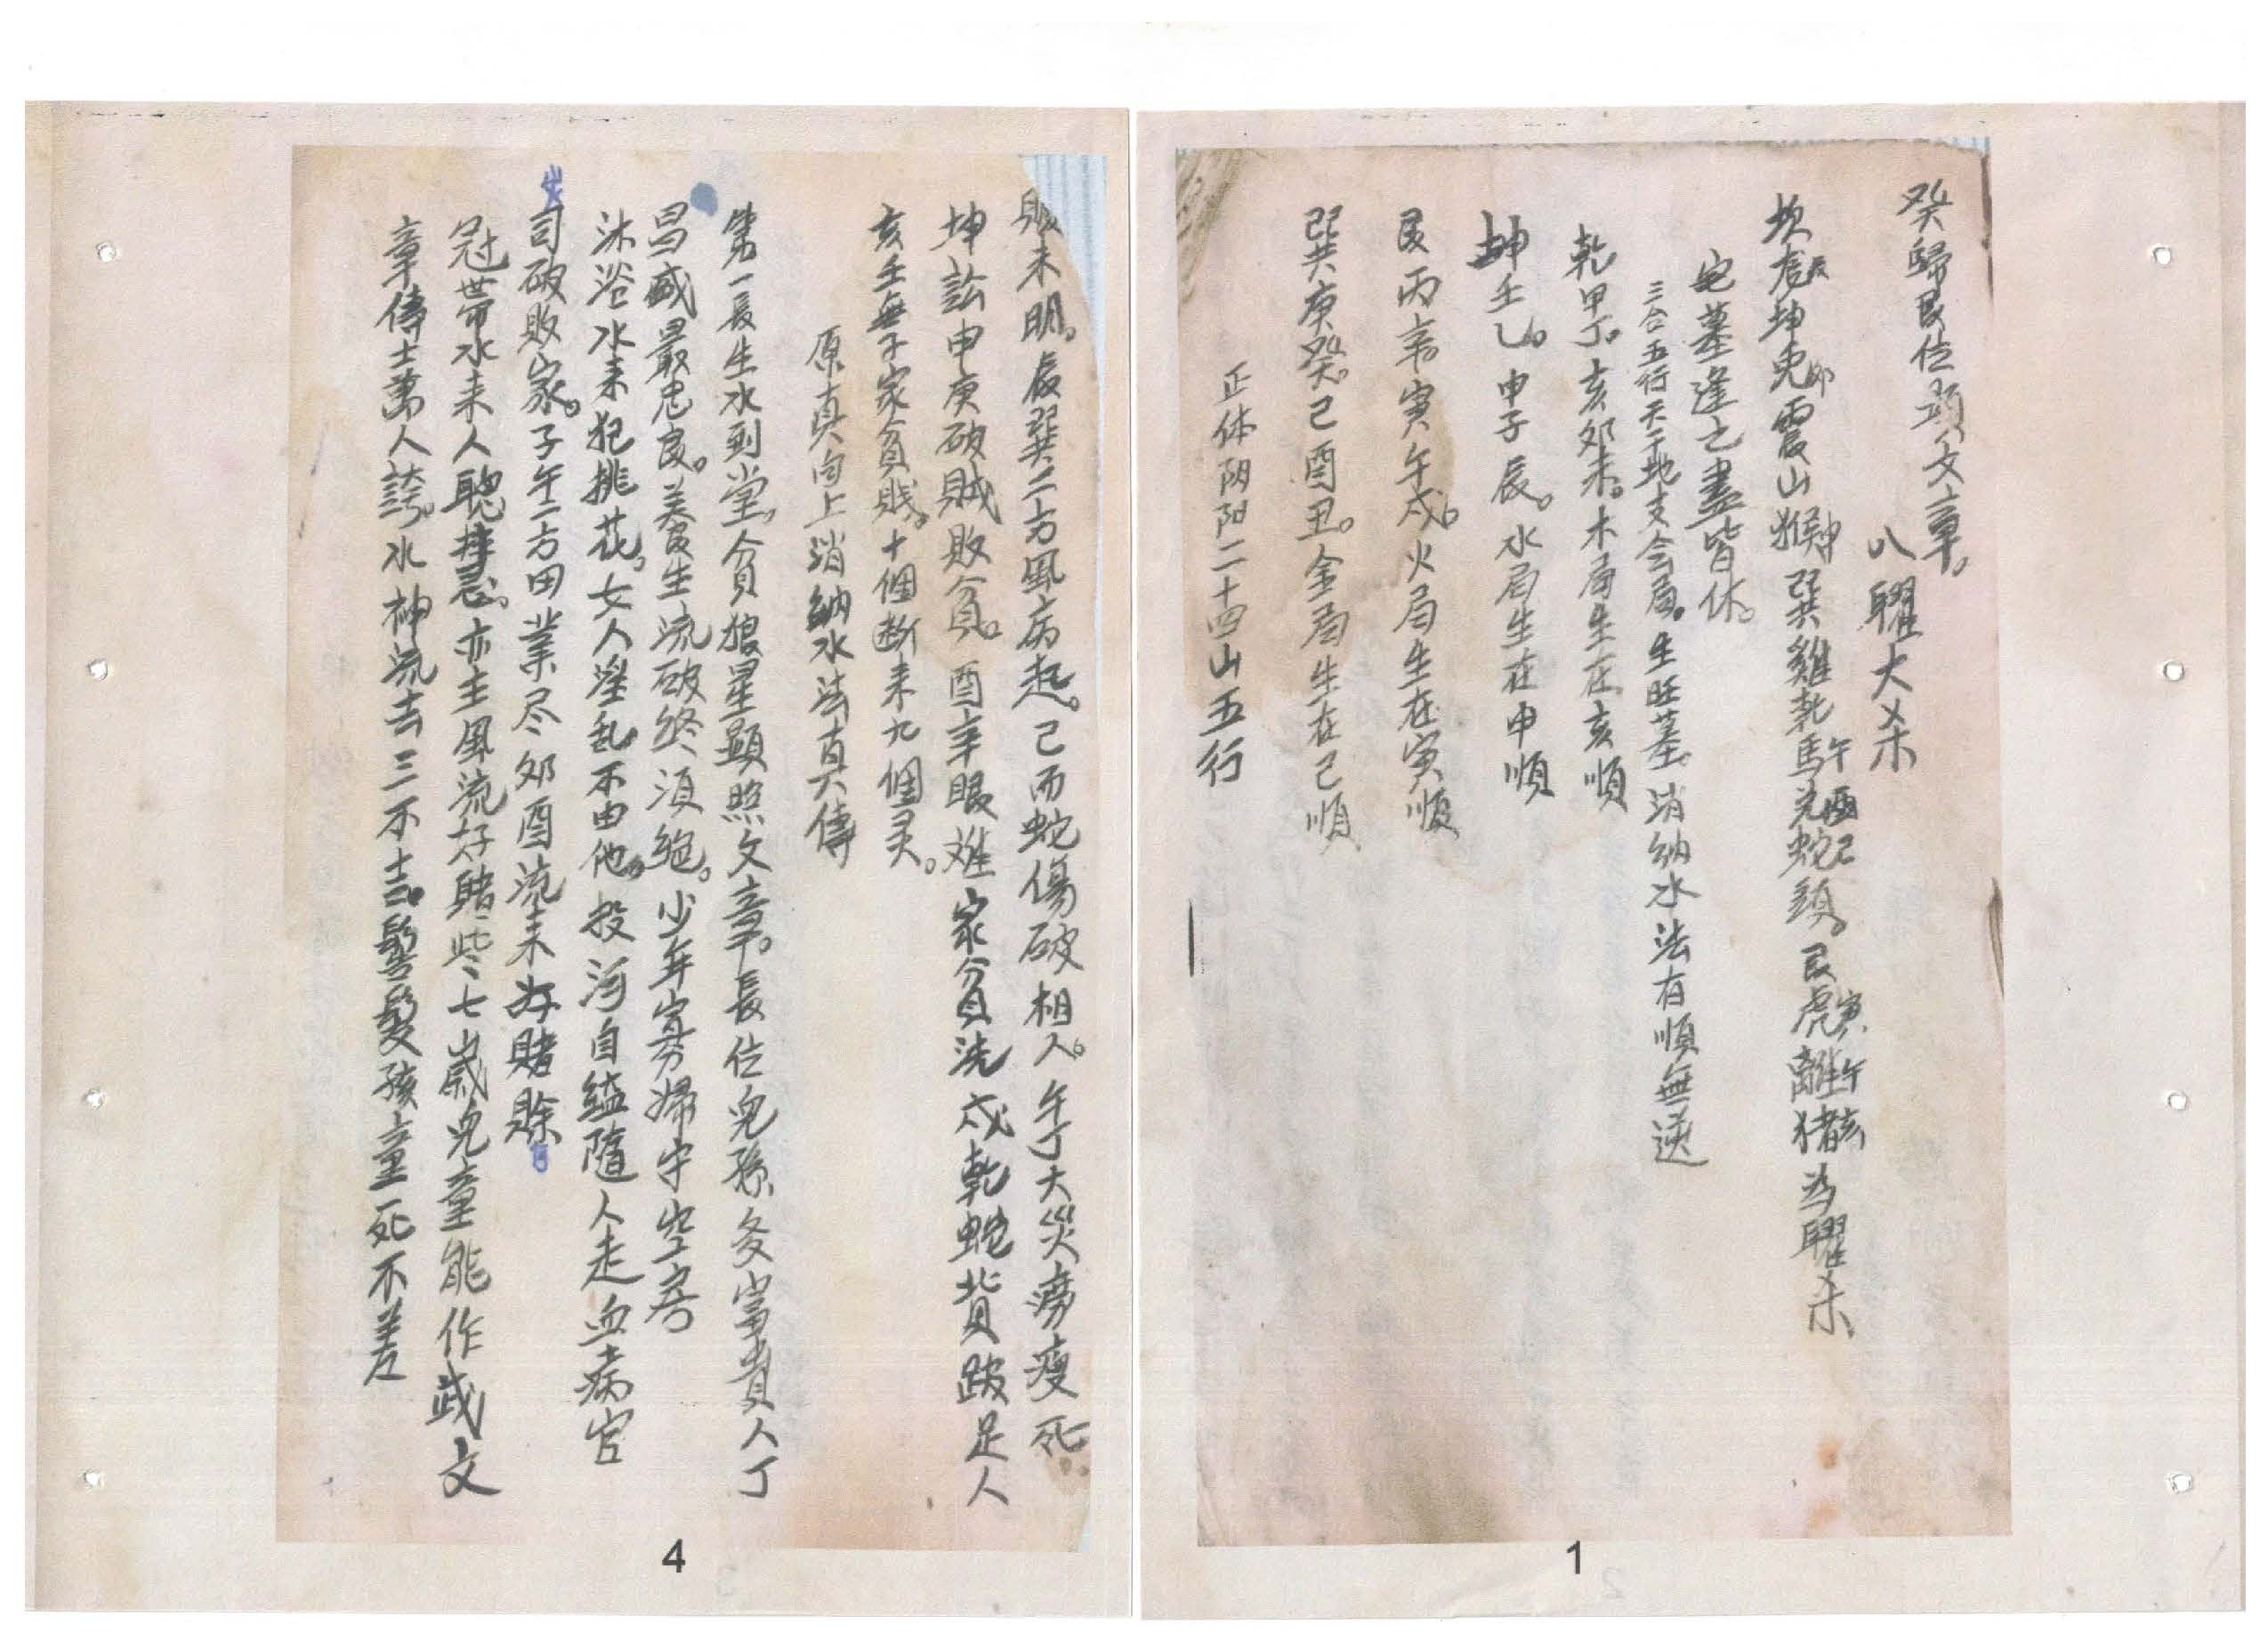 癸歸艮位頭文章。
八曜大杀
坎龙辰坤兎卯震山猴申巽雞乾馬午酉兑蛇己頭。艮虎寅離午猪亥为曜杀
宅墓逢之盡皆休。
三合五行天干地支会局。生旺墓消纳水法有順無逆
乾甲丁。亥卯未。木局生在亥順
坤壬乙。申子辰。水局生在申順
艮丙辛。寅午戌。火局生在寅順
巽庚癸。己酉丑。金局生在己順
正体阴阳二十四山五行
1
未明。辰巽二方風病起。己丙蛇傷破相人。午丁大災痨瘦死
坤訟申庚破賊敗貧。酉辛眼难家貧洗戌乾蛇背跛足人
亥壬無子家貧賎。十個断来九個灵。
原真向上消納水法真傳
第一長生水到堂。貪狼星顕照文章。長位兒孫多富貴人丁
昌盛最忠良。養生流破終須绝。少年寡婦守空房
沐浴水来犯挑花。女人淫乱不由他。投河自縊隨人走血病官
司破敗家。子午二方田業尽卯酉流来好賭賒
冠带水来人聪。亦主風流好賭些七歲兒童能作武文
章傳士萬人誇。水神流去三不吉。髫髪孩童死不差
4